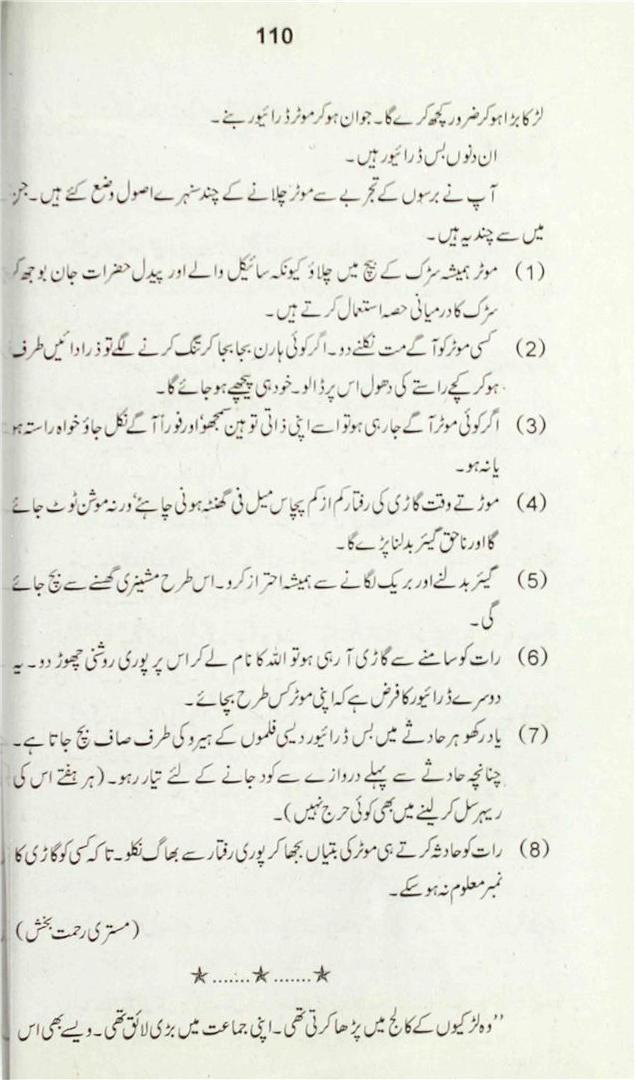 110
لڑکا بڑا ہو کر ضرور کچھ کرے گا۔ جوان ہو کر موٹر ڈرائیور بنے۔
ان دنوں بس ڈرائیور ہیں۔
آپ نے برسوں کے تجربے سے موٹر چلانے کے چند سنہرے اصول وضع کئے ہیں۔ جن
میں سے چند یہ ہیں۔
(1) موٹر ہمیشہ سڑک کے بیچ میں چلاؤ کیونکہ سائیکل والے اور پیدل حضرات جان بوجھ کر
سڑک کا درمیانی حصہ استعمال کرتے ہیں۔
(2) کسی موٹر کو آگے مت نکلنے دو۔ اگر کوئی ہارن بجا بجا کر تنگ کرنے لگے تو ذرا دائیں طرف
ہو کر کچے راستے کی دھول اس پر ڈالو۔ خود ہی پیچھے ہو جائے گا۔
(3) اگر کوئی موٹر آگے جا رہی ہو تو اسے اپنی ذاتی توہین سمجھو' اور فوراً آگے نکل جاؤ خواہ راستہ ہو
یا نہ ہو۔
(4) موڑتے وقت گاڑی کی رفتار کم از کم پچاس میل فی گھنٹہ ہونی چاہئے' ورنہ موشن ٹوٹ جائے
گا اور ناحق گیئر بدلنا پڑے گا۔
(5) گیئر بدلنے اور بریک لگانے سے ہمیشہ احتراز کرو۔ اس طرح مشینری گھسنے سے بچ جائے
گی۔
(6) رات کو سامنے سے گاڑی آ رہی ہو تو اللہ کا نام لے کر اس پر پوری روشنی چھوڑ دو۔ یہ
دوسرے ڈرائیور کا فرض ہے کہ اپنی موٹر کس طرح بچائے۔
(7) یاد رکھو ہر حادثے میں بس ڈرائیور دیسی فلموں کے ہیرو کی طرف صاف بچ جاتا ہے۔
چنانچہ حادثے سے پہلے دروازے سے کود جانے کے لئے تیار رہو۔ (ہر ہفتے اس کی
ریہرسل کر لینے میں بھی کوئی حرج نہیں)۔
(8) رات کو حادثہ کرتے ہی موٹر کی بتیاں بجھا کر پوری رفتار سے بھاگ نکلو۔ تاکہ کسی کو گاڑی کا
نمبر معلوم نہ ہو سکے۔
(مستری رحمت بخش)
★.......★.......★
"وہ لڑکیوں کے کالج میں پڑھا کرتی تھی۔ اپنی جماعت میں بڑی لائق تھی۔ ویسے بھی اس